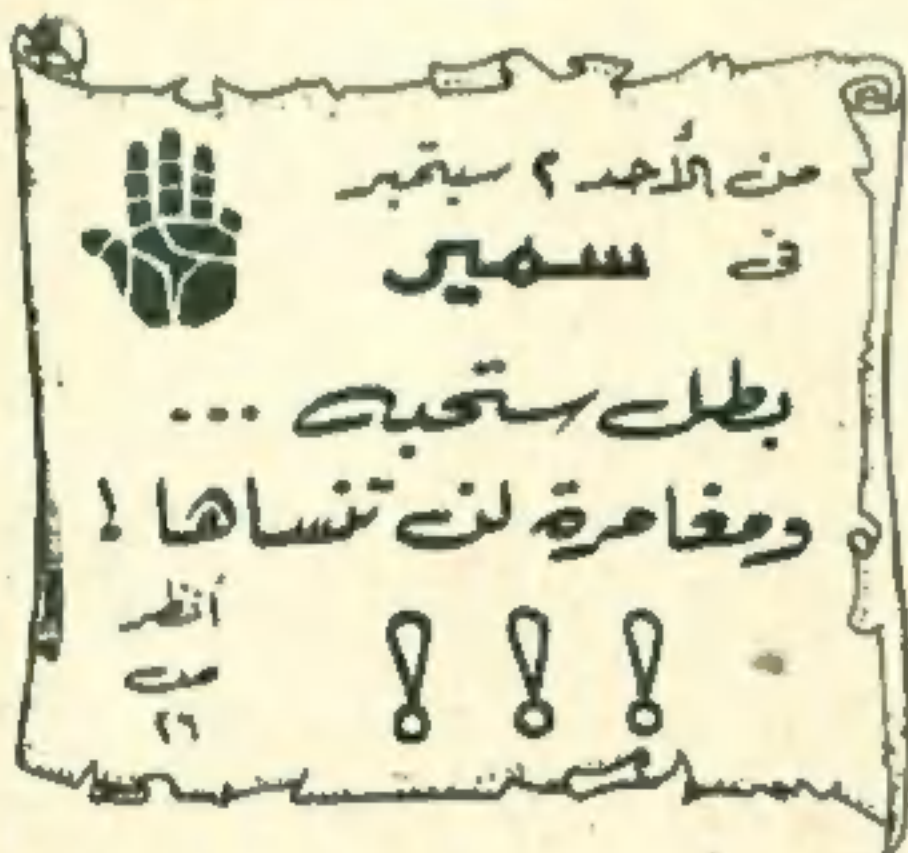 من الأحد ٢ سبتمبر
فى سمير
بطل ستحبه ...
ومغامرة لن تنساها !
! ! !
أنظر
ص
٢٦